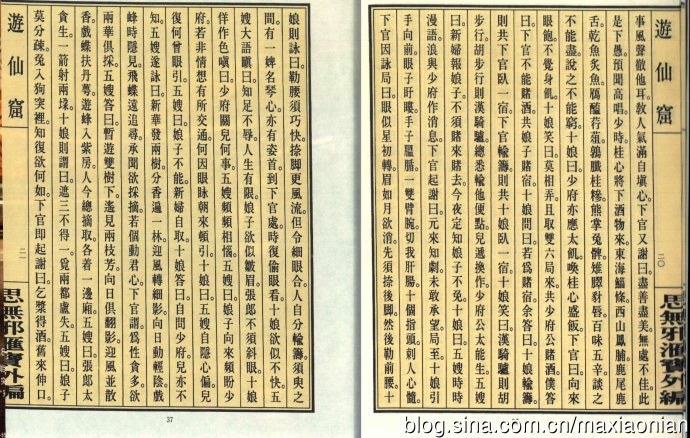 遊仙窟
二〇
思無邪滙寶外編
事。風聲徹他耳。教人氣滿自塡心。下官又謝曰。盡善盡美。無處不佳。此
是下愚。預聞高唱。少時。桂心將下酒物來。東海鯔條。西山鳳脯。鹿尾鹿
舌。乾魚炙魚。鴈醢荇葅。鶉臛桂糝。熊掌兔髀。雉臎豺脣。百味五辛。談之
不能盡。說之不能窮。十娘曰。少府亦應太飢。喚桂心盛飯。下官曰。向來
眼飽。不覺身飢。十娘笑曰。莫相弄。且取雙六局來。共少府公賭酒。僕答
曰。下官不能賭酒。共娘子賭宿。十娘問曰。若爲賭宿。余答曰。十娘輸籌。
則共下官臥一宿。下官輸籌。則共十娘臥一宿。十娘笑曰。漢騎驢則胡
步行。胡步行則漢騎驢。總悉輸他便點。兒遞換作。少府公太能生。五嫂
曰。新婦報娘子。不須賭來賭去。今夜定知娘子不免。十娘曰。五嫂時時
漫語。浪與少府作消息。下官起謝曰。元來知劇。未敢承望。局至。十娘引
手向前。眼子盱。手子膃腯。一雙臂腕。切我肝腸。十個指頭。刺人心髓。
下官因詠局曰。眼似星初轉。眉如月欲消。先須捺後脚。然後勒前腰。十
娘則詠曰。勒腰須巧快。捺脚更風流。但令細眼合。人自分輸籌。須臾之
間。有一婢名琴心。亦有姿首。到下官處。時復偷眼看。十娘欲似不快。五
嫂大語嗔曰。知足不辱。人生有限。娘子欲似皺眉。張郎不須斜眼。十娘
佯作色嗔曰。少府關兒何事。五嫂頻頻相惱。五嫂曰。娘子向來頻盼少
府。若非情想有所交通。何因眼脉朝來頓引。十娘曰。五嫂自隱心偏。兒
復何曾眼引。五嫂曰。娘子不能。新婦自取。十娘答曰。自問少府。兒亦不
知。五嫂遂詠曰。新華發兩樹。分香遍一林。迎風轉細影。向日動輕陰。戲
蜂時隱見。飛蝶遠追尋。承聞欲採摘。若個動君心。下官謂爲性貪多。欲
兩華俱採。五嫂答曰。暫遊雙樹下。遙見兩枝芳。向日俱翻影。迎風並散
香。戲蝶扶丹萼。遊蜂入紫房。人今總摘取。各着一邊廂。五嫂曰。張郎太
貪生。一箭射兩垛。十娘則謂曰。遮三不得一。覓兩都盧失。五嫂曰。娘子
莫分疎。兔入狗突裡。知復欲何如。下官即起謝曰。乞漿得酒。舊來伸口。
遊仙窟
二一
思無邪滙寶外編
37
blog.sina.com.cn/maxiaonian